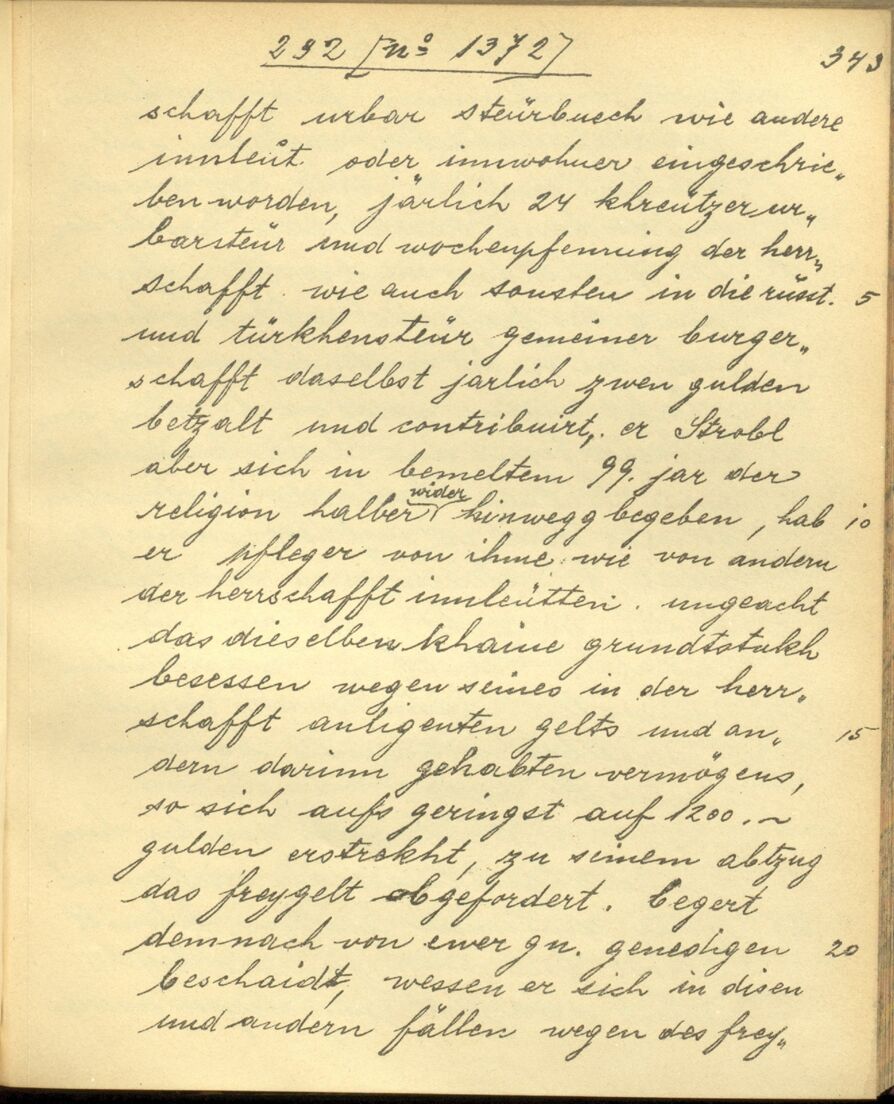 292 [nº 1372]
343
schafft urbar steürbuech wie andere
innleüt oder innwohner eingeschrie„
ben worden, järlich 24 khreützer ur„
barsteür und wochenpfenning der herr„
schafft wie auch sonsten in die rüst. 5
und türkhensteür gemeiner burger„
schafft daselbst jarlich zwen gulden
betzalt und contribuirt, er Strobl
aber sich in bemeltem 99. jar der
religion halber wider hinwegg begeben, hab 10
er pfleger von ihme wie von andern
der herrschafft innleütten ungeacht
das dieselben khaine grundtstukh
besessen wegen seines in der herr„
schafft anligenten gelts und an„ 15
dern darinn gehabten vermögens,
so sich aufs geringst auf 1200.~
gulden erstrekht, zu seinem abtzug
das freygelt abgefordert. begert
demnach von ewer gn. genedigen 20
beschaidt, wessen er sich in disen
und andern fällen wegen des frey„